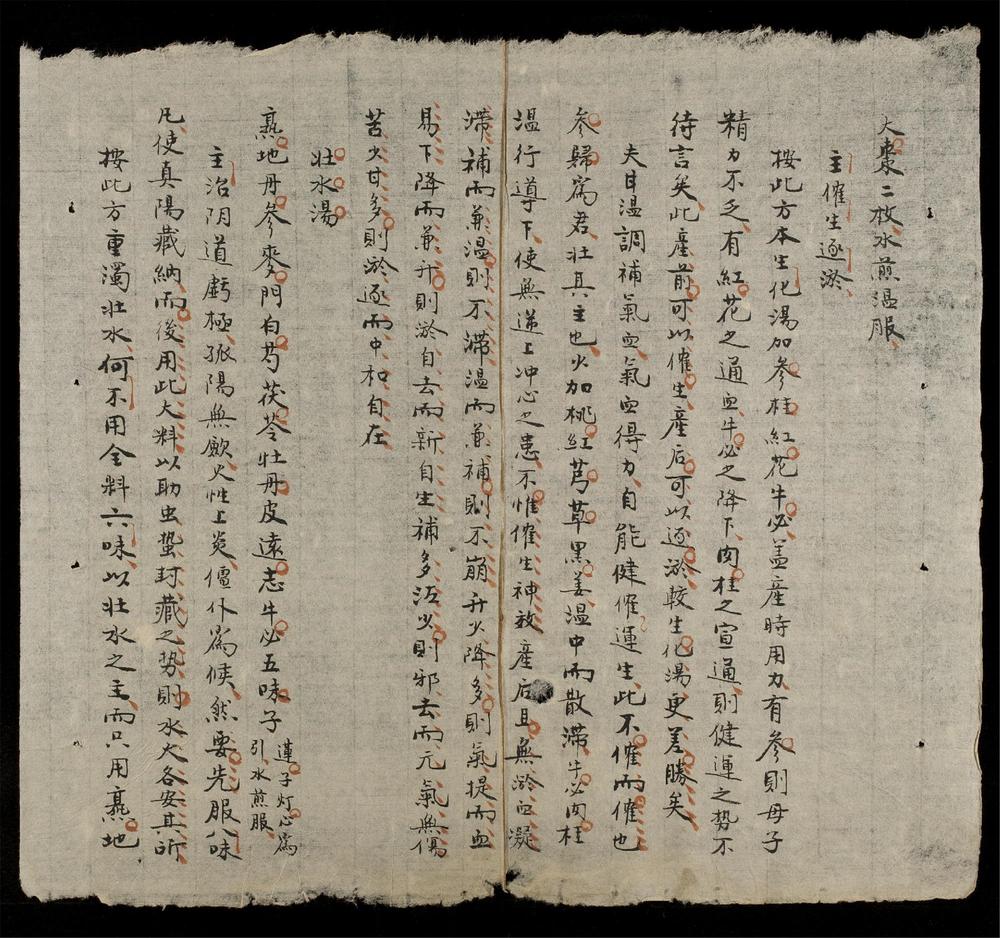 大棗二枚水煎溫服
主催生逐淤
按此方本生化湯加參桂紅花牛必盖產時用力有參則母子
精力不乏有紅花之通血牛必之降下肉桂之宣通則健運之势不
待言矣此產前可以催生產后可以逐淤較生化湯更差勝矣
夫甘溫調補氣血氣血得力自能健催運生此不催而催也
參歸為君壯其主也火加桃紅芎草黑姜溫中而散滞牛必肉桂
溫行導下使無逆上冲心之患不惟催生神效產后且無淤血凝
滞補而兼溫則不滞溫而兼補則不崩升火降多則氣提而血
易下降而兼升則淤自去而新自生補多泻火則邪去而元氣無傷
苦火甘多則淤逐而中和自在
壯水湯
熟地丹參麥門白芍茯苓牡丹皮遠志牛必五味子蓮子灯心為引水煎服
主治阴道虧極孤陽無歛火性上炎僵仆為候然要先服八味
凡使真陽藏納而後用此大料以助虫蛰封藏之势則水火各安其所
按此方重濁壯水何不用全料六味以壯水之主而只用熟地